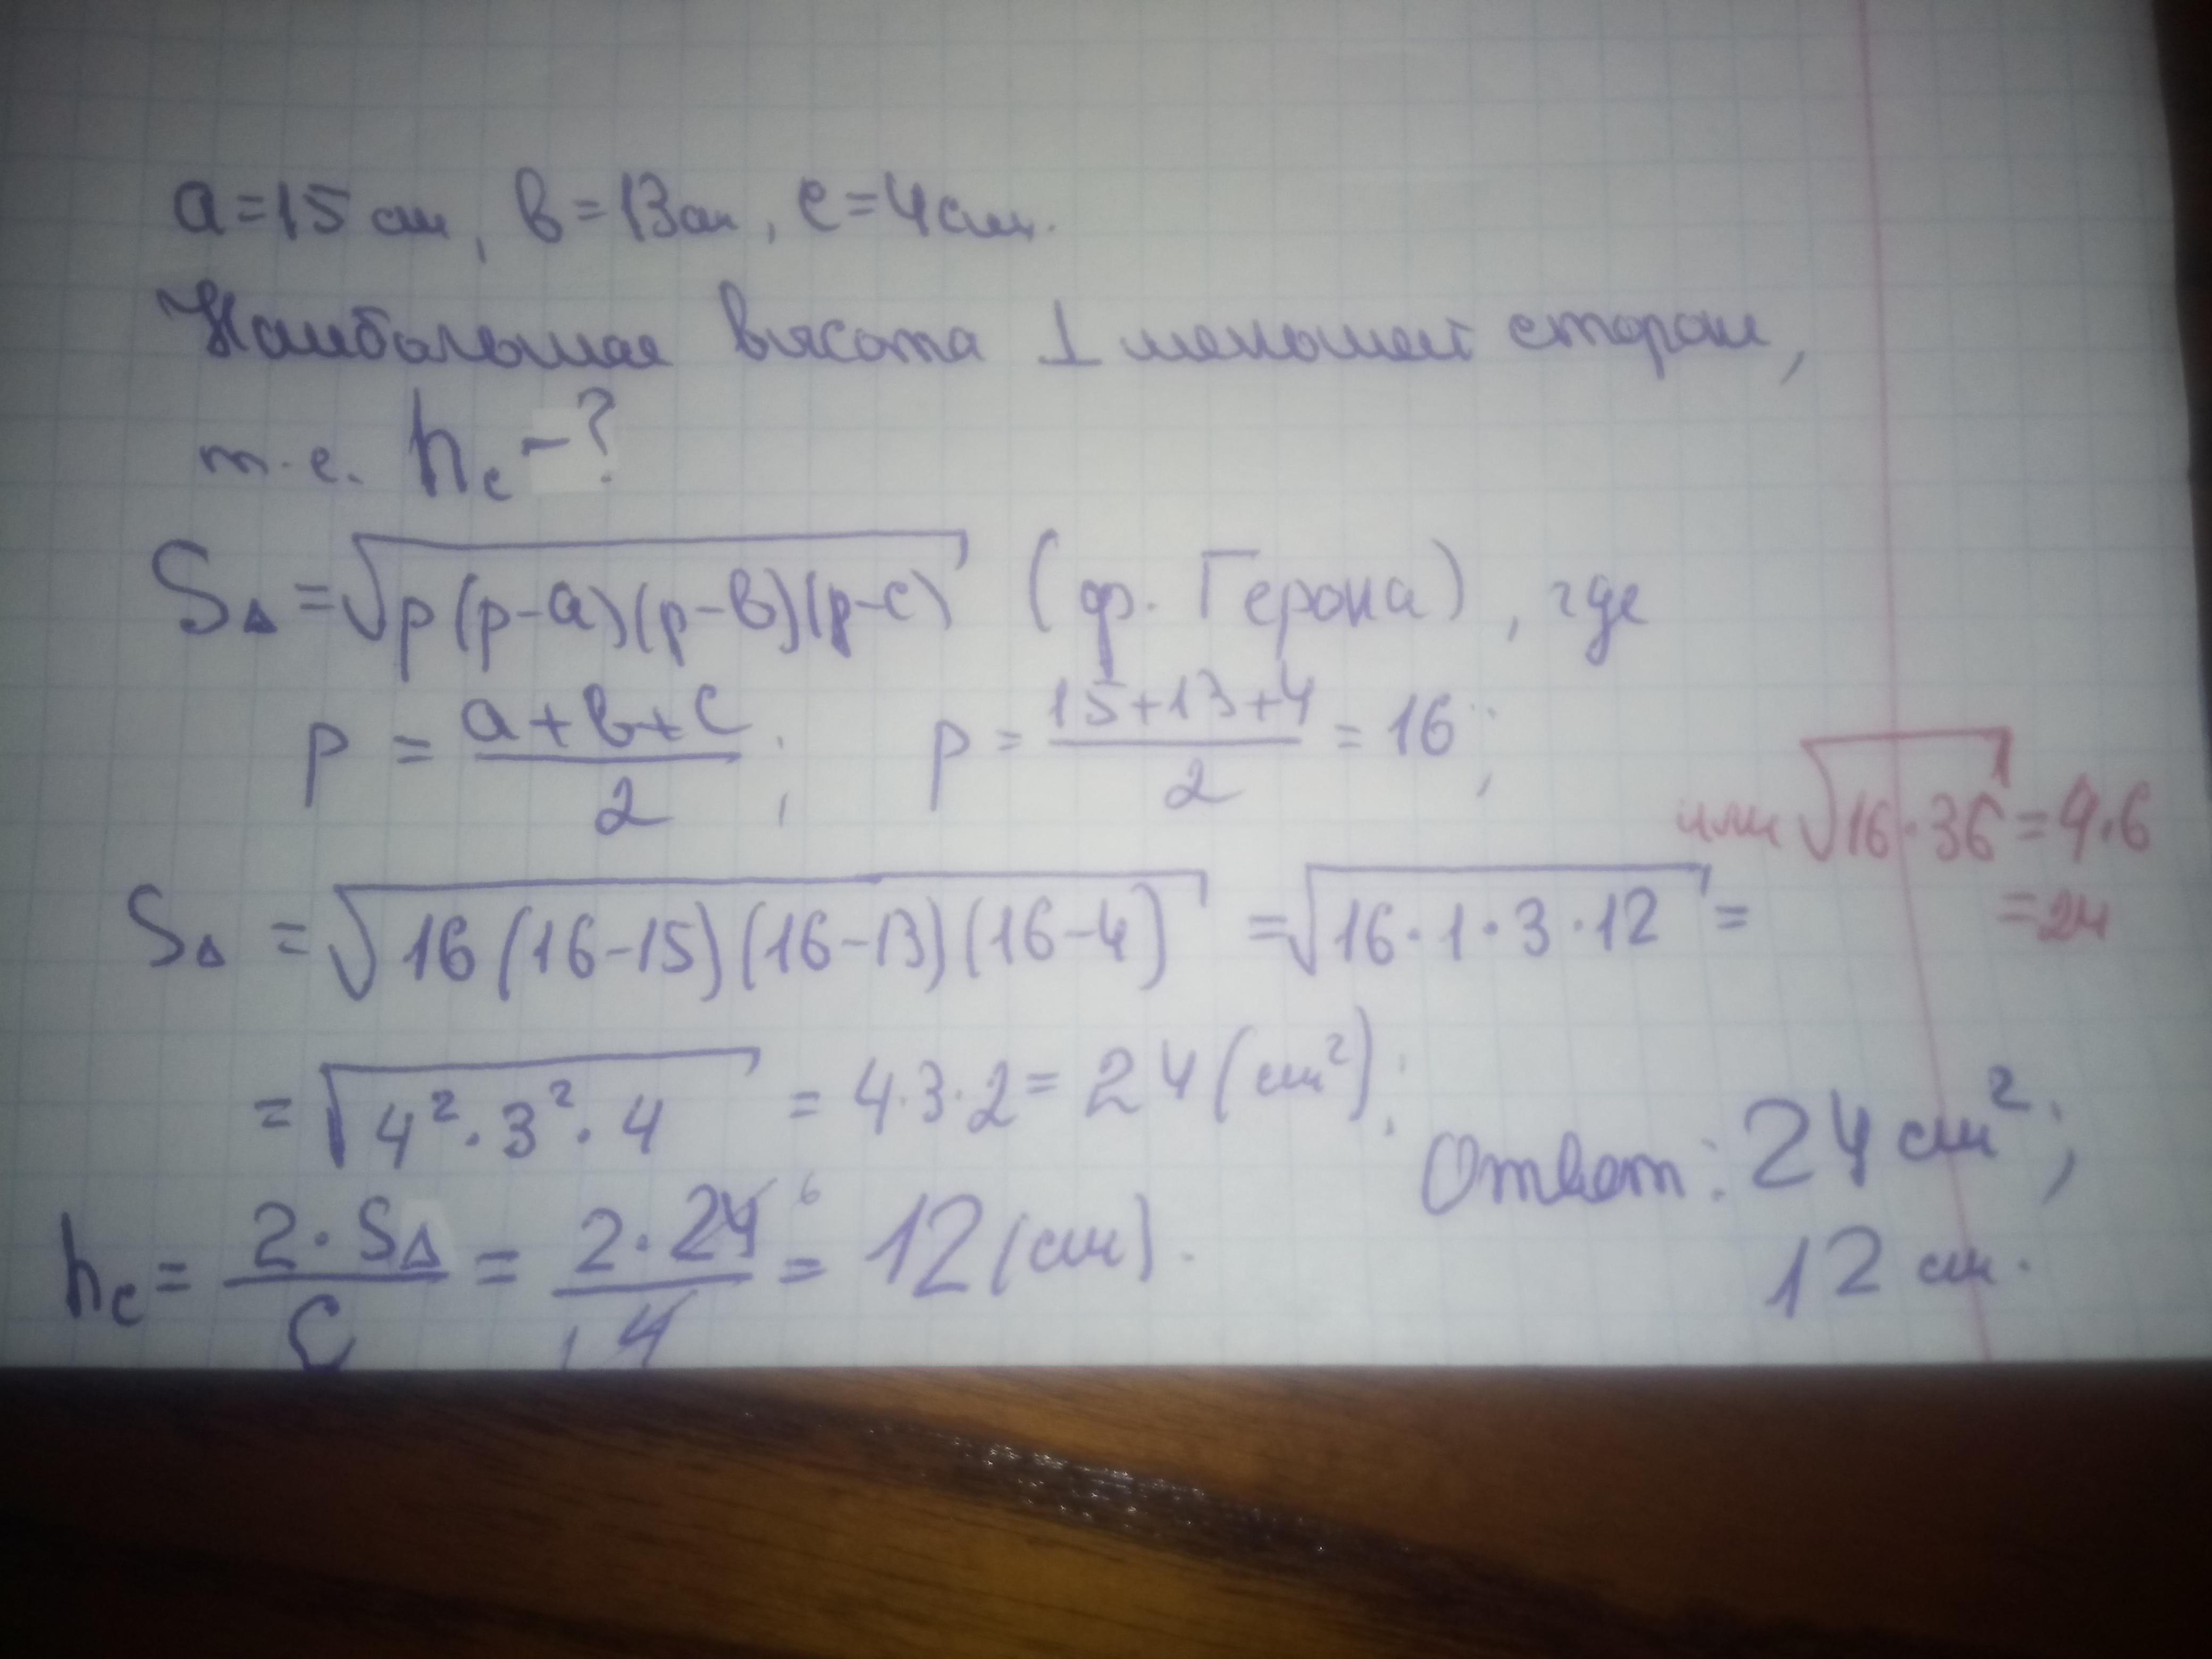 a=15 см, в=13см, с=4см.
Наибольшая высота ⊥ меньшей сторон,
т.е. hc -?
S∆ = √p(p-a)(p-в)(p-c) (ф. Герона), где
p = (a+в+c)/2; p = (15+13+4)/2 = 16;
или √16·36 = 4·6
=24
S∆ = √16(16-15)(16-13)(16-4) = √16·1·3·12 =
= √4²·3²·4 = 4·3·2 = 24 (см²);
Ответ: 24 см²;
12 см.
hc = 2·S∆/c = 2·24 6/1 4 = 12 (см).